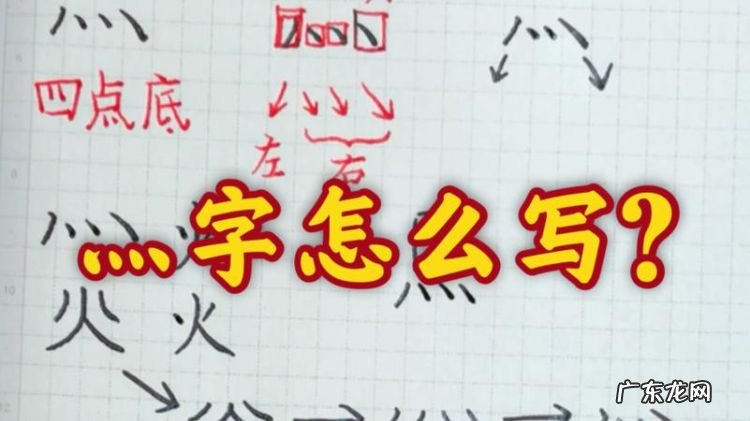 灬
灬
四点底
左
右
灬字怎么写?
灬
火
火
灬
广东龙网